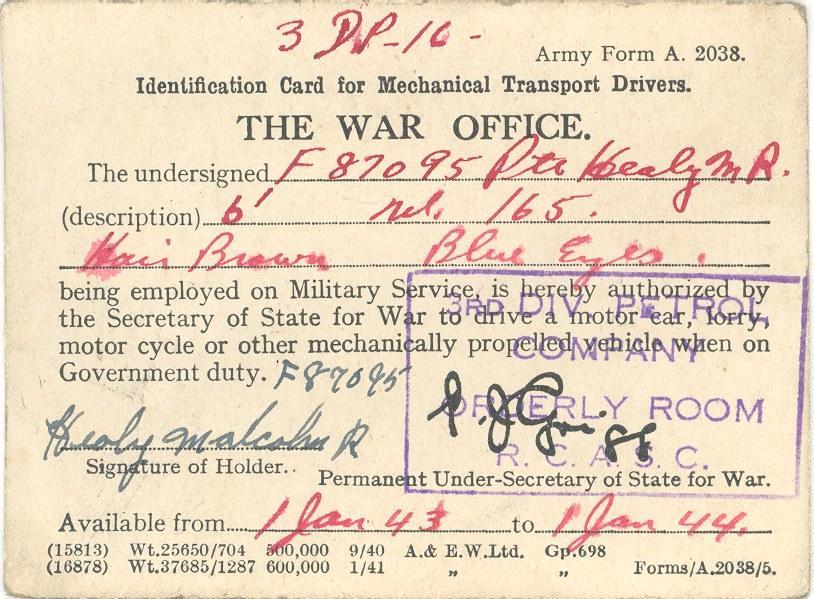 3 DP-16-
Army Form A. 2038.
Identification Card for Mechanical Transport Drivers.
THE WAR OFFICE.
The undersigned F 87095 Pte Healy M R.
(description) 6' 165.
Hair Brown Blue Eyes.
being employed on Military Service, is hereby authorized by
the Secretary of State for War to drive a motor car, lorry,
motor cycle or other mechanically propelled vehicle when on
Government duty. F87095
3RD DIV. PETROL
COMPANY
ORDERLY ROOM
R. C. A. S. C.
Healy Malcolm R
Signature of Holder.
Permanent Under-Secretary of State for War.
Available from 1 Jan 43 to 1 Jan 44.
(15813) Wt.25650/704 500,000 9/40 A.& E.W.Ltd. Gp.698
(16878) Wt.37685/1287 600,000 1/41 „ „ Forms/A.2038/5.